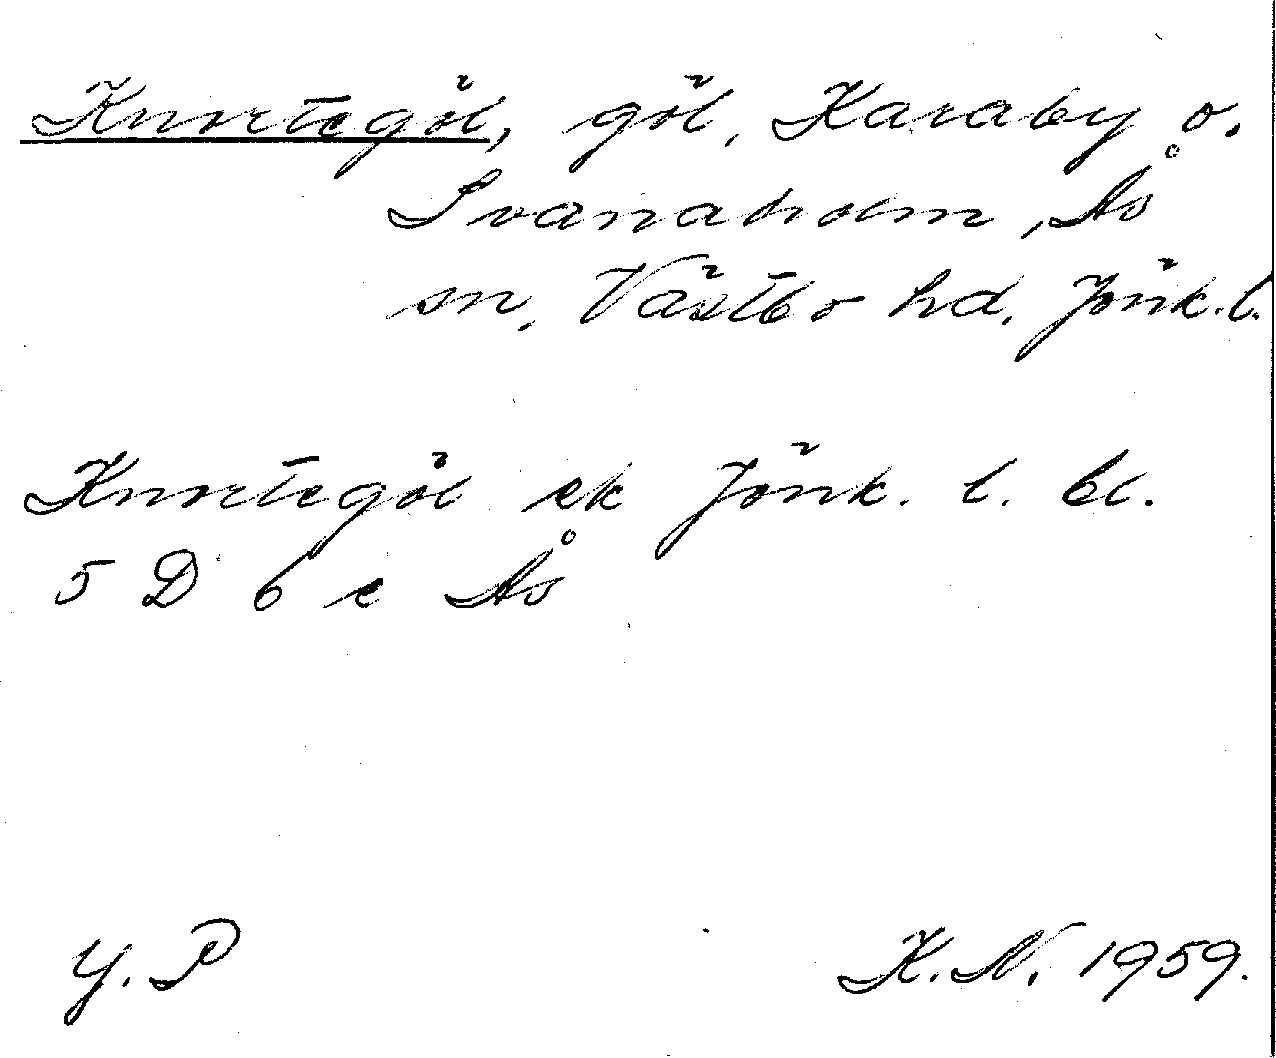 Knortegöl, göl, Karaby o.
Svanaholm, Ås
sn, Västbo hd, Jönk. l.
Knortegöl ek Jönk. l. bl.
5 D 6 e Ås
Y. P
K. N. 1959.